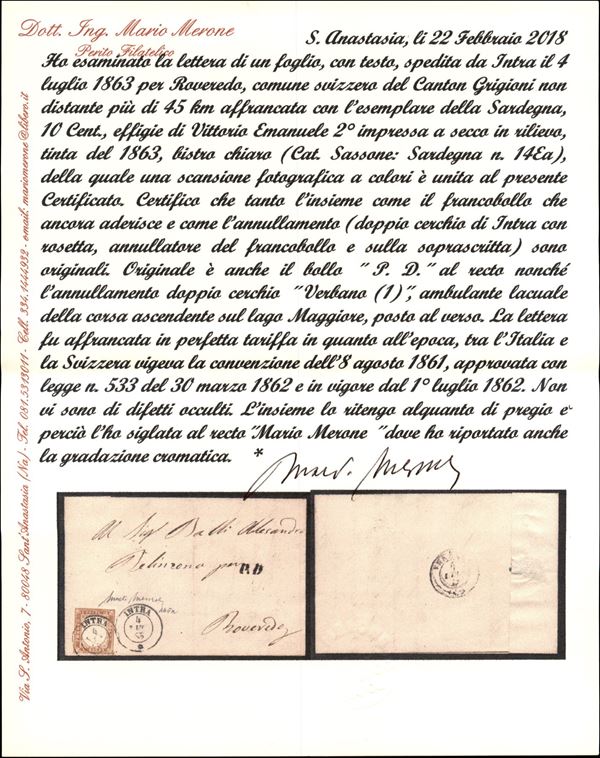 Dott. Ing. Mario Merone
Perito Filatelico
S. Anastasia, li 22 Febbraio 2018
Ho esaminato la lettera di un foglio, con testo, spedita da Intra il 4
luglio 1863 per Roveredo, comune svizzero del Canton Grigioni non
distante più di 45 km affrancata con l'esemplare della Sardegna,
10 Cent., effigie di Vittorio Emanuele 2° impressa a secco in rilievo,
tinta del 1863, bistro chiaro (Cat. Sassone: Sardegna n. 14Ea),
della quale una scansione fotografica a colori è unita al presente
Certificato. Certifico che tanto l'insieme come il francobollo che
ancora aderisce e come l'annullamento (doppio cerchio di Intra con
rosetta, annullatore del francobollo e sulla soprascritta) sono
originali. Originale è anche il bollo " P. D." al recto nonché
l'annullamento doppio cerchio "Verbano (1)", ambulante lacuale
della corsa ascendente sul lago Maggiore, posto al verso. La lettera
fu affrancata in perfetta tariffa in quanto all'epoca, tra l'Italia e
la Svizzera vigeva la convenzione dell'8 agosto 1861, approvata con
legge n. 533 del 30 marzo 1862 e in vigore dal 1° luglio 1862. Non
vi sono di difetti occulti. L'insieme lo ritengo alquanto di pregio e
perciò l'ho siglata al recto "Mario Merone "dove ho riportato anche
la gradazione cromatica. *
Via S. Antonio, 7 - 80048 Sant'Anastasia (Na) - Tel. 081.5313011 - Cell. 334.1444932 - email: mariomerone@libero.it
Al Sigr Balli Alesandro
Belinzona per
P.D
Mario Merone
INTRA
4
63
INTRA
4
Roveredo